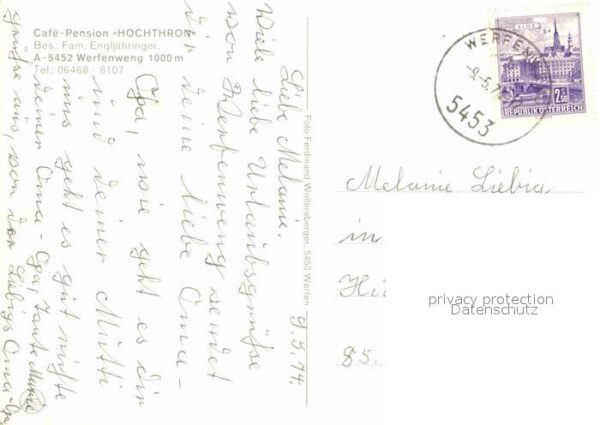 Café-Pension »HOCHTHRON«
Bes.: Fam. Engljähringer,
A-5452 Werfenweng 1000 m
Tel.: 06468 - 8107
9.5.74.
Liebe Melanie.
Viele liebe Urlaubsgrüße
von Werfenweng sendet
dir deine liebe Oma-
Opa, wie geht es dir
und deiner Mutti
uns geht es gut
deiner Oma-Opa, Tante
grüße uns, von der Liebigs Oma-
Foto Ferdinand Wollersberger, 5450 Werfen
WERFENWENG
-9.-5.74
5453
LINZ
2.50
REPUBLIK ÖSTERREICH
Melanie Liebig
in
85.
privacy protection
Datenschutz